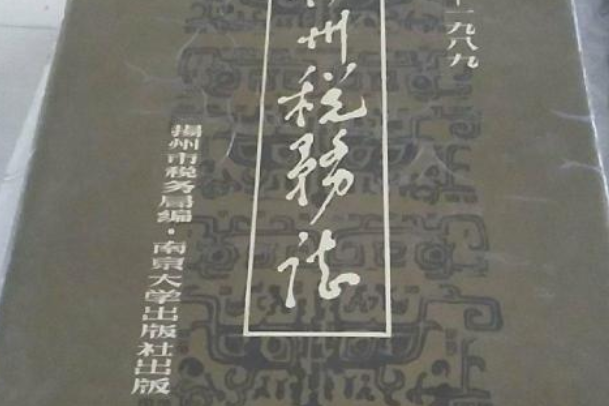 一九八九
州税務誌
揚州市税务局编·南京大学出版社出版